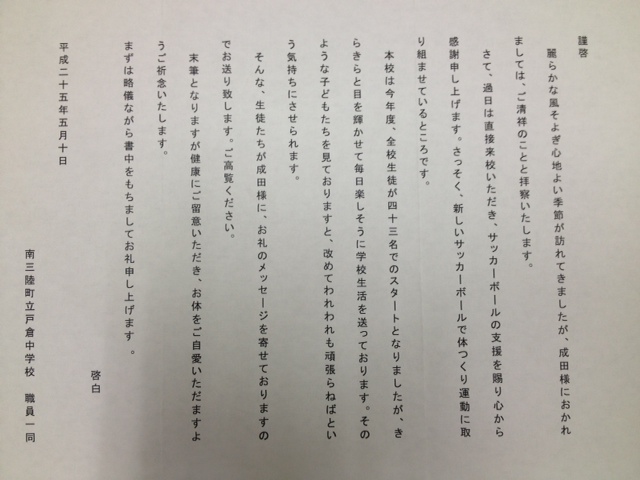 謹啓
麗らかな風そよぎ心地よい季節が訪れてきましたが、成田様におかれ
ましては、ご清祥のことと拝察いたします。
さて、過日は直接来校いただき、サッカーボールの支援を賜り心から
感謝申し上げます。さっそく、新しいサッカーボールで体つくり運動に取
り組ませているところです。
本校は今年度、全校生徒が四十三名でのスタートとなりましたが、き
らきらと目を輝かせて毎日楽しそうに学校生活を送っております。その
ような子どもたちを見ておりますと、改めてわれわれも頑張らねばとい
う気持ちにさせられます。
そんな、生徒たちが成田様に、お礼のメッセージを寄せておりますの
でお送り致します。ご高覧ください。
末筆となりますが健康にご留意いただき、お体をご自愛いただますよ
うご祈念いたします。
まずは略儀ながら書中をもちましてお礼申し上げます。
啓白
平成二十五年五月十日
南三陸町立戸倉中学校　職員一同